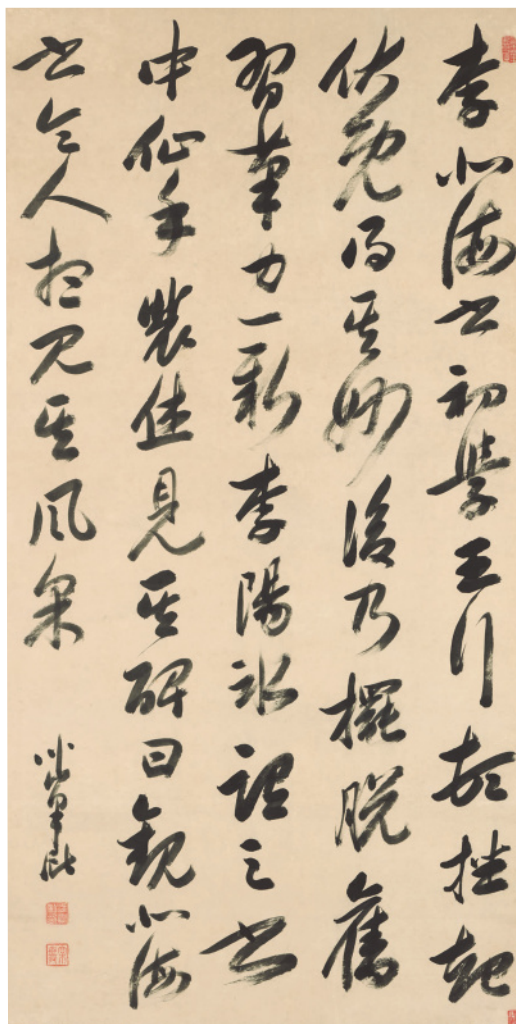 李北海書初學王行於挫起
伏既得其妙後乃擺脫舊
習筆力一新李陽冰謂之書
中仙手裴休見其碑曰觀北海
書令人想見其風采